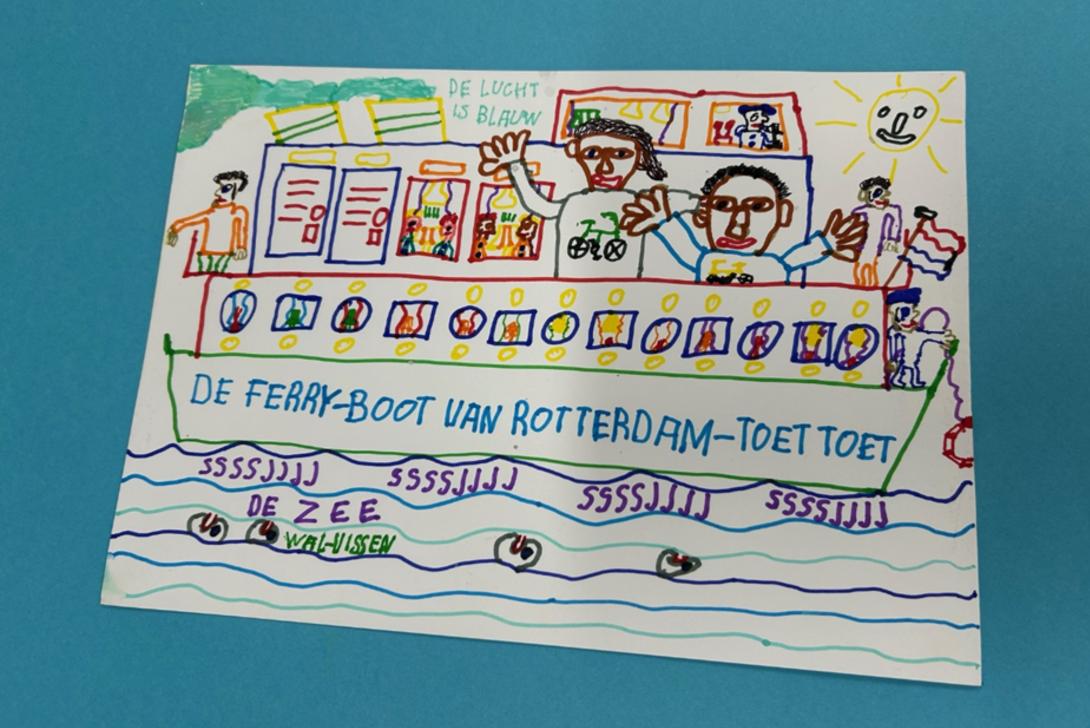 DE LUCHT
IS BLAUW
DE FERRY-BOOT VAN ROTTERDAM-TOET TOET
SSSSJJJJ SSSSJJJJ SSSSJJJJ SSSSJJJJ
DE ZEE
WAL-VISSEN